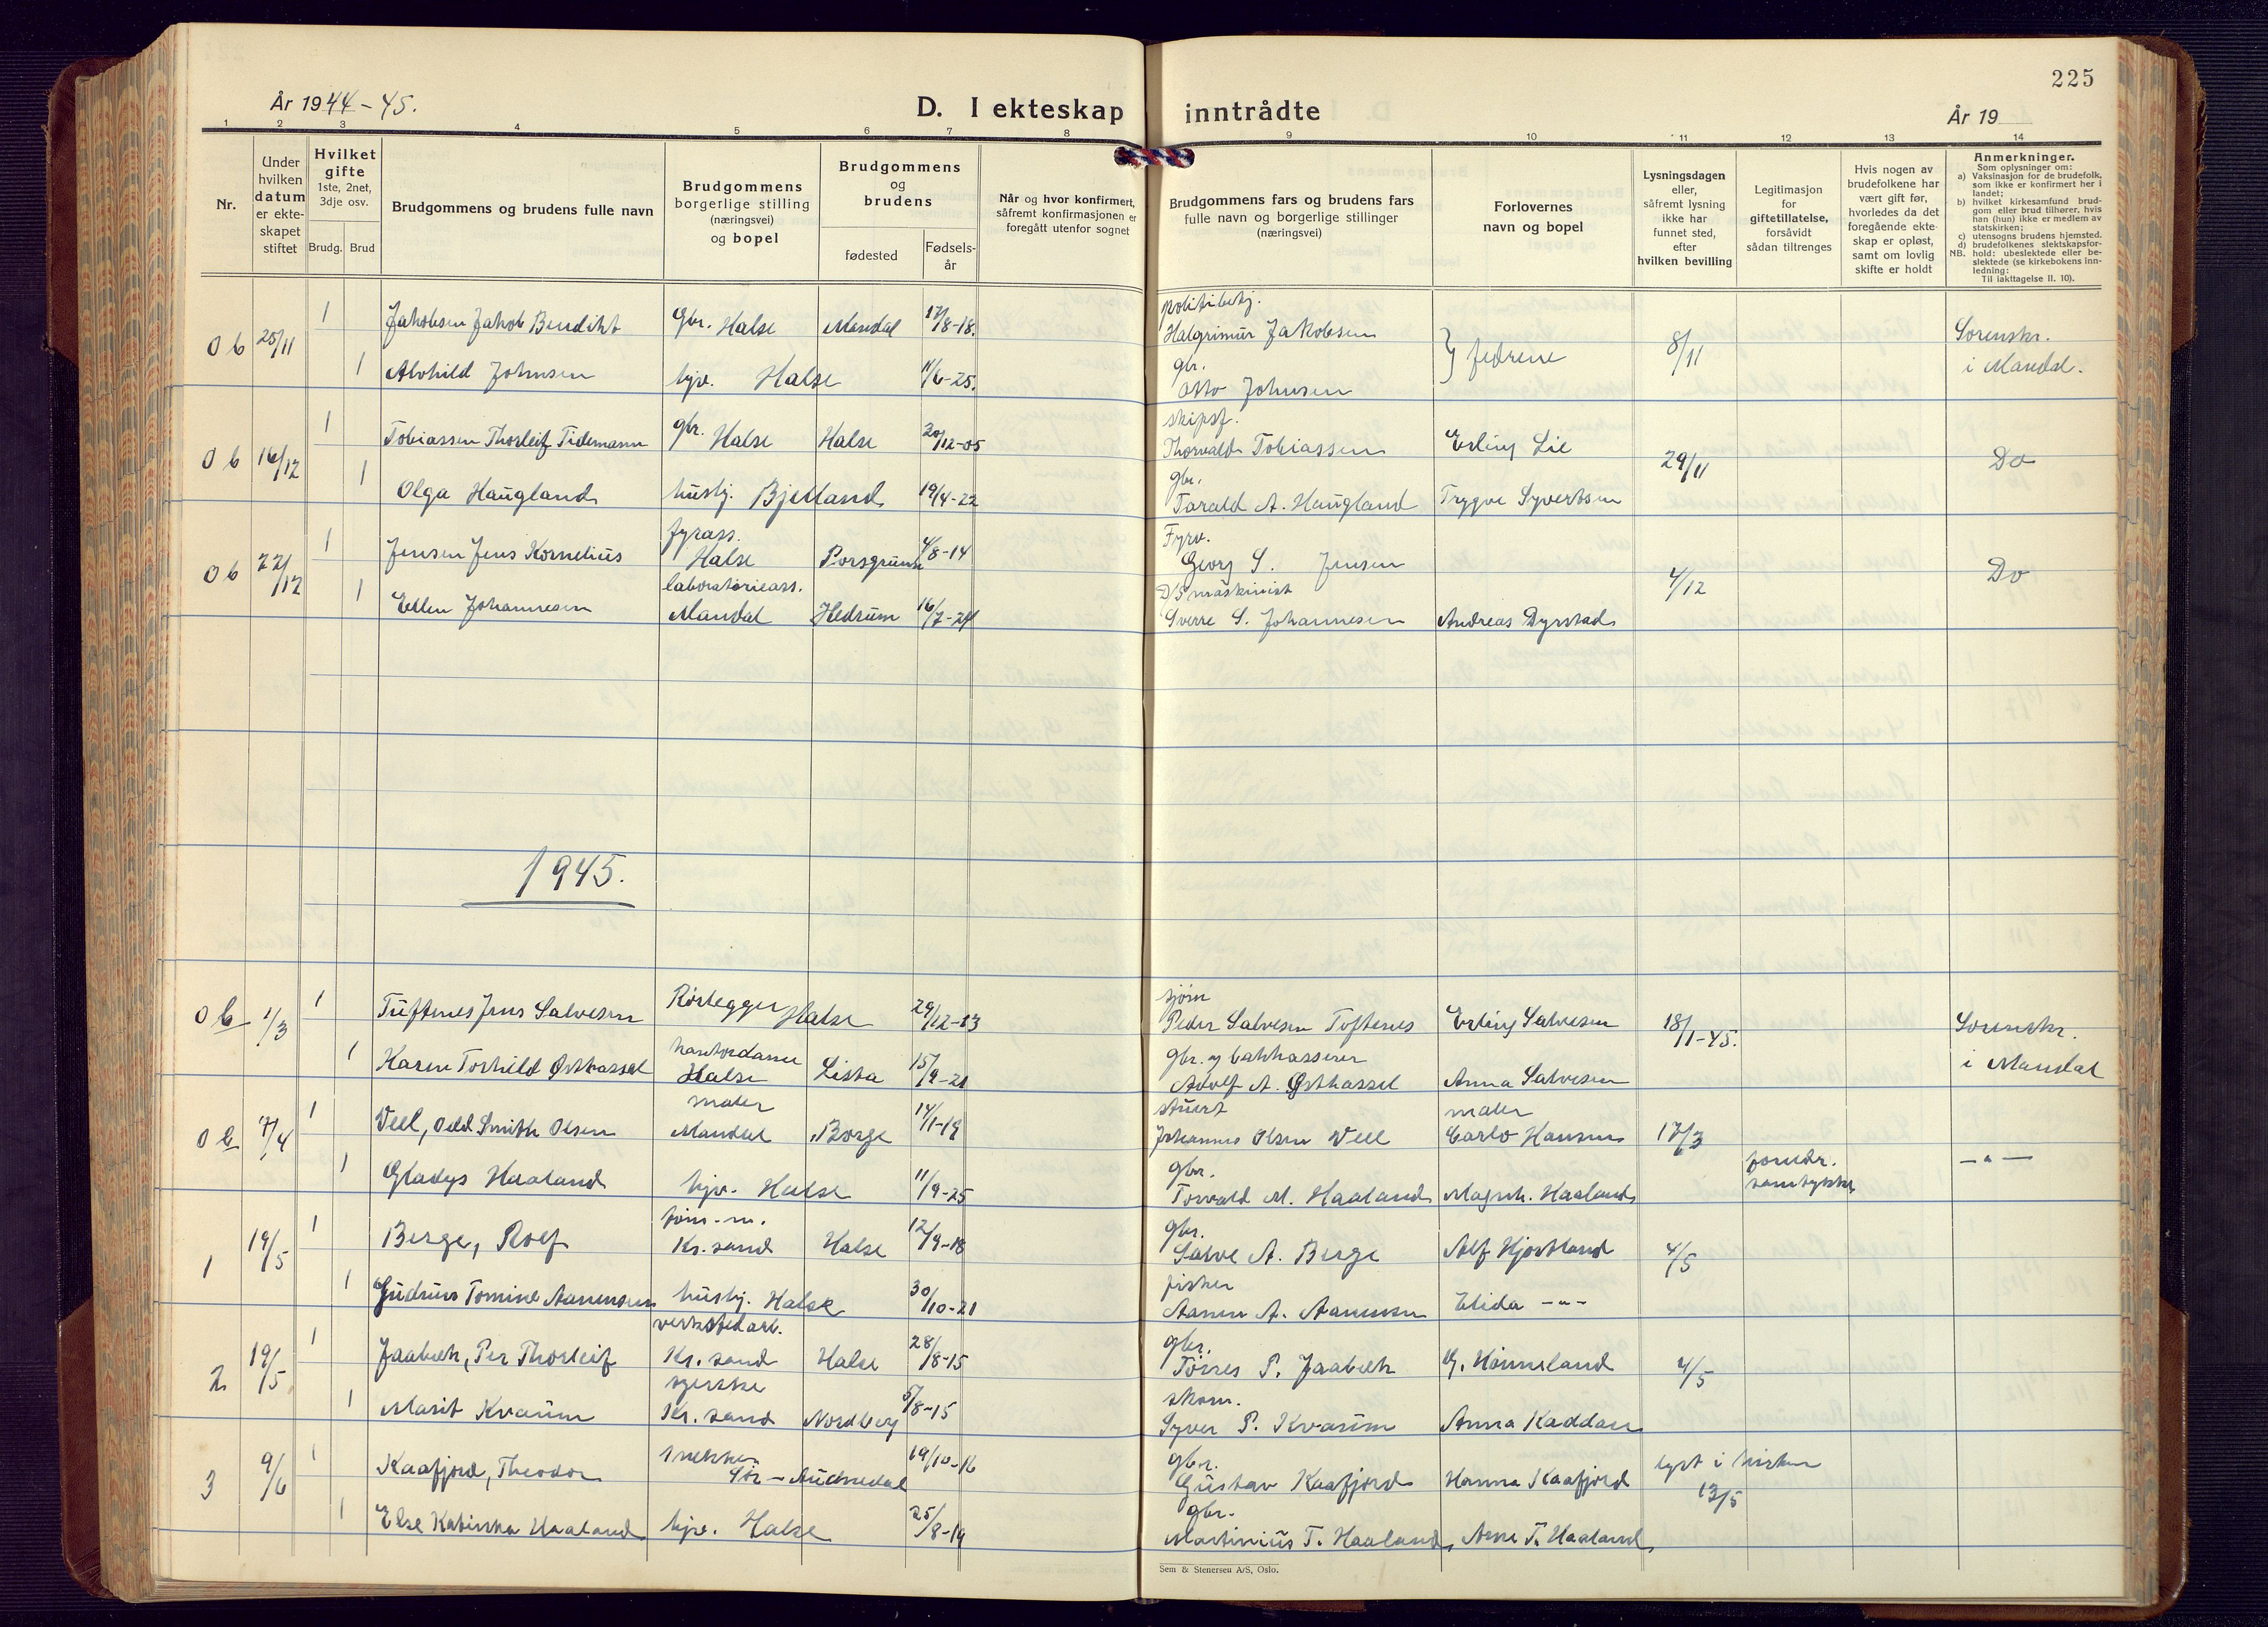 225
År 1944-45.
D. I ekteskap inntrådte
År 19
1 2 3 4 5 6 7 8 9 10 11 12 13 14
Nr.
Under hvilken datum er ekteskapet stiftet
Hvilket gifte 1ste, 2net, 3dje osv.
Brudg. Brud
Brudgommens og brudens fulle navn
Brudgommens borgerlige stilling (næringsvei) og bopel
Brudgommens og brudens
fødested
Fødselsår
Når og hvor konfirmert, såfremt konfirmasjonen er foregått utenfor sognet
Brudgommens fars og brudens fars fulle navn og borgerlige stillinger (næringsvei)
Forlovernes navn og bopel
Lysningsdagen eller, såfremt lysning ikke har funnet sted, efter hvilken bevilling
Legitimasjon for giftetillatelse, forsåvidt sådan tiltrenges
Hvis nogen av brudefolkene har vært gift før, hvorledes da det foregående ekteskap er opløst, samt om lovlig skifte er holdt
Anmerkninger.
Som oplysninger om:
a) Vaksinasjon for de brudefolk, som ikke er konfirmert her i landet;
b) hvilket kirkesamfund brudgom eller brud tilhører, hvis han (hun) ikke er medlem av statskirken;
c) utensogns brudens hjemsted.
d) brudefolkenes slektskapsforhold: ubeslektede eller beslektede (se kirkebokens innledning:
NB. Til iakttagelse II. 10).
politibetj.
0 b 25/11 1 Jakobsen Jakob Bendikt gbr. Halse Mandal 17/8-18. Halgrimur Jakobsen
} fedrene 8/11 Sorenskr. i Mandal.
gbr.
1 Alvhild Johnsen hjv. Halse 11/6-25. Otto Johnsen
skipsf.
0 b 16/12 1 Tobiassen Thorleif Tidemann gbr. Halse Halse 20/12-05 Thorvald Tobiassen Erling Lie 29/11 Do
gbr.
1 Olga Haugland husbj. Bjelland 19/4-22 Tarald A. Haugland Trygve Syvertsen
fyrass. Fyrv.
0 b 22/12 1 Jensen Jens Kornelius Halse Porsgrunn 4/8-14 Georg S. Jensen 4/12 Do
laboratorieass. D/S maskinist
1 Ellen Johannesen Mandal Hedrum 16/7-24 Sverre S. Johannesen Andreas Dyrstad
1945.
sjøm
0 b 1/3 1 Tuftenes Jens Salvesen Rørlegger Halse 29/12-13 Peder Salvesen Toftenes Erling Salvesen 18/1-45. Sorenskr. i Mandal
kontordame gbr. og
1 Karen Torhild Østhassel Halse Lista 15/9-21 Adolf A. Østhassel Anna Salvesen
maler stuert maler
0 b 7/4 1 Veel, Odd Smith Olsen Mandal Borge 14/1-19 Johannes Olsen Veel Carlo Hansen 17/3
gbr. foreldr. samtykke -"-
1 Gladys Haaland hjv. Halse 11/9-25 Torvald M. Haaland Magnh. Haaland
gbr.
1 19/5 1 Berge, Rolf Kr.sand Halse 12/9-18 Salve A. Berge Alf Hjortland 4/5
fisker
1 Gudrun Tomine Aanensen husbj. Halse 30/10-21 Aanen A. Aanensen Elida -"-
verkstedarb. gbr.
2 19/5 1 Jaabæk, Per Thorleif Kr. sand Halse 28/8-15 Tørres P. Jaabæk G. Hønneland 4/5
syerske skom.
1 Marit Kvarum Kr. sand Nordberg 5/8-15 Syver P. Kvarum Anna Kaddan
snekker gbr.
3 9/6 1 Kaafjord, Theodor Sør-Audnedal 19/10-16 Gustav Kaafjord Hanna Kaafjord lyst i kirken 13/5
gbr.
1 Else Katinka Haaland hjv. Halse 25/8-19 Martinius T. Haaland Arne T. Haaland
Sem & Stenersen A/S, Oslo.